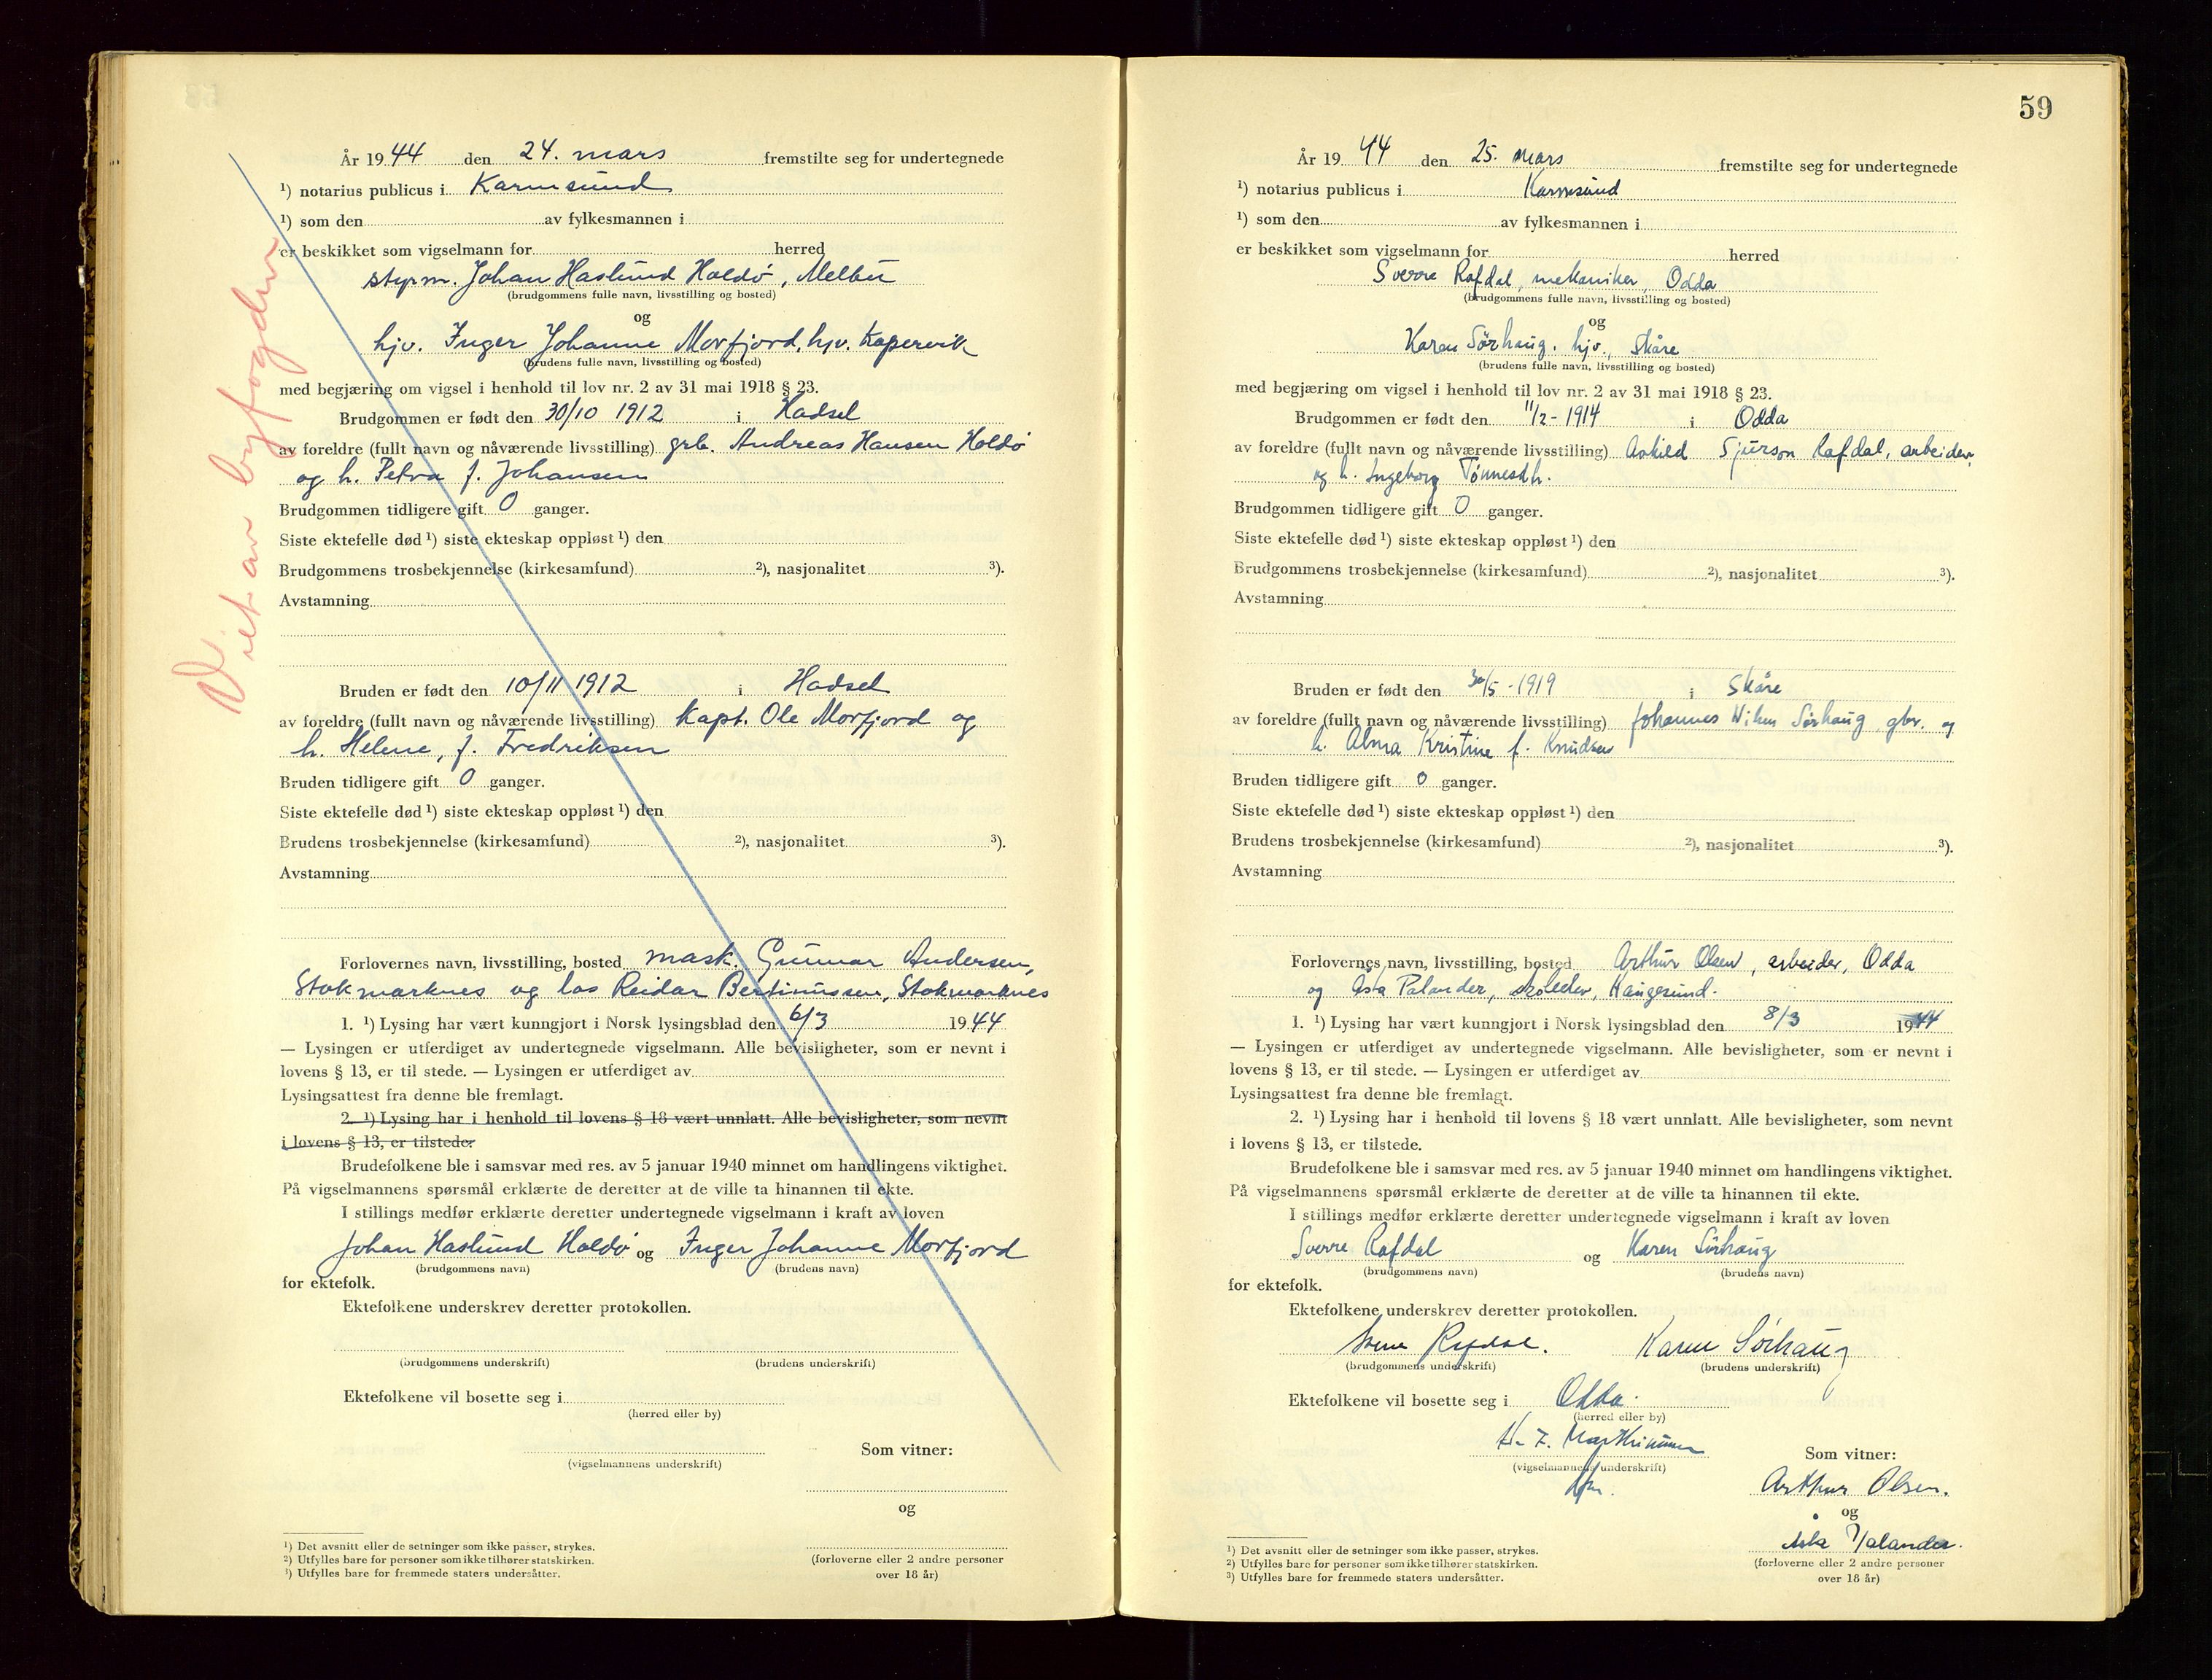 År 1944 den 24. mars fremstilte seg for undertegnede
¹) notarius publicus i Karmsund
¹) som den av fylkesmannen i
er beskikket som vigselmann for herred
styrm. Johan Haslund Holdö, Melbu
(brudgommens fulle navn, livsstilling og bosted)
og
hjv. Inger Johanne Morfjord, hjv. Kopervik
(brudens fulle navn, livsstilling og bosted)
med begjæring om vigsel i henhold til lov nr. 2 av 31 mai 1918 § 23.
Brudgommen er født den 30/10 1912 i Hadsel
av foreldre (fullt navn og nåværende livsstilling) grb. Andreas Hansen Holdö
og h. Petra f. Johansen
Brudgommen tidligere gift 0 ganger.
Siste ektefelle død ¹) siste ekteskap oppløst ¹) den
Brudgommens trosbekjennelse (kirkesamfund) ²), nasjonalitet ³).
Avstamning
Bruden er født den 10/11 1912 i Hadsel
av foreldre (fullt navn og nåværende livsstilling) Kapt. Ole Morfjord og
h. Helene, f. Fredriksen
Bruden tidligere gift 0 ganger.
Siste ektefelle død ¹) siste ekteskap oppløst ¹) den
Brudens trosbekjennelse (kirkesamfund) ²), nasjonalitet ³).
Avstamning
Forlovernes navn, livsstilling, bosted mask. Gunnar Andersen,
Stokmarknes og los Reidar Bertinussen, Stokmarknes
1. ¹) Lysing har vært kunngjort i Norsk lysingsblad den 6/3 1944
— Lysingen er utferdiget av undertegnede vigselmann. Alle bevisligheter, som er nevnt i
lovens § 13, er til stede. — Lysingen er utferdiget av
Lysingsattest fra denne ble fremlagt.
2. ¹) Lysing har i henhold til lovens § 18 vært unnlatt. Alle bevisligheter, som nevnt
i lovens § 13, er tilstede.
Brudefolkene ble i samsvar med res. av 5 januar 1940 minnet om handlingens viktighet.
På vigselmannens spørsmål erklærte de deretter at de ville ta hinannen til ekte.
I stillings medfør erklærte deretter undertegnede vigselmann i kraft av loven
Johan Haslund Holdö og Inger Johanne Morfjord
(brudgommens navn) (brudens navn)
for ektefolk.
Ektefolkene underskrev deretter protokollen.
(brudgommens underskrift) (brudens underskrift)
Ektefolkene vil bosette seg i
(herred eller by)
Som vitner:
(vigselmannens underskrift)
og
¹) Det avsnitt eller de setninger som ikke passer, strykes.
²) Utfylles bare for personer som ikke tilhører statskirken.
³) Utfylles bare for fremmede staters undersåtter.
(forloverne eller 2 andre personer
over 18 år)
Viet av byfogden
59
År 1944 den 25. mars fremstilte seg for undertegnede
¹) notarius publicus i Karmsund
¹) som den av fylkesmannen i
er beskikket som vigselmann for herred
Sverre Rafdal, mekaniker, Odda
(brudgommens fulle navn, livsstilling og bosted)
og
Karen Sörhaug. hjv., Skåre
(brudens fulle navn, livsstilling og bosted)
med begjæring om vigsel i henhold til lov nr. 2 av 31 mai 1918 § 23.
Brudgommen er født den 11/2 - 1914 i Odda
av foreldre (fullt navn og nåværende livsstilling) Askild Sjurson Rafdal, arbeider,
og h. Ingeborg Tönnesdh.
Brudgommen tidligere gift 0 ganger.
Siste ektefelle død ¹) siste ekteskap oppløst ¹) den
Brudgommens trosbekjennelse (kirkesamfund) ²), nasjonalitet ³).
Avstamning
Bruden er født den 30/5 - 1919 i Skåre
av foreldre (fullt navn og nåværende livsstilling) Johannes Sörhaug, gbr. og
h. Alma Kristine f. Knudsen
Bruden tidligere gift 0 ganger.
Siste ektefelle død ¹) siste ekteskap oppløst ¹) den
Brudens trosbekjennelse (kirkesamfund) ²), nasjonalitet ³).
Avstamning
Forlovernes navn, livsstilling, bosted Arthur Olsen, arbeider, Odda
og Åsta Palander, skoleelev, Haugesund.
1. ¹) Lysing har vært kunngjort i Norsk lysingsblad den 8/3 1944
— Lysingen er utferdiget av undertegnede vigselmann. Alle bevisligheter, som er nevnt i
lovens § 13, er til stede. — Lysingen er utferdiget av
Lysingsattest fra denne ble fremlagt.
2. ¹) Lysing har i henhold til lovens § 18 vært unnlatt. Alle bevisligheter, som nevnt
i lovens § 13, er tilstede.
Brudefolkene ble i samsvar med res. av 5 januar 1940 minnet om handlingens viktighet.
På vigselmannens spørsmål erklærte de deretter at de ville ta hinannen til ekte.
I stillings medfør erklærte deretter undertegnede vigselmann i kraft av loven
Sverre Rafdal og Karen Sörhaug
(brudgommens navn) (brudens navn)
for ektefolk.
Ektefolkene underskrev deretter protokollen.
Sverre Rafdal. Karen Sörhaug
(brudgommens underskrift) (brudens underskrift)
Ektefolkene vil bosette seg i Odda.
(herred eller by)
Som vitner:
(vigselmannens underskrift)
Arthur Olsen.
og
Palander.
¹) Det avsnitt eller de setninger som ikke passer, strykes.
²) Utfylles bare for personer som ikke tilhører statskirken.
³) Utfylles bare for fremmede staters undersåtter.
(forloverne eller 2 andre personer
over 18 år)